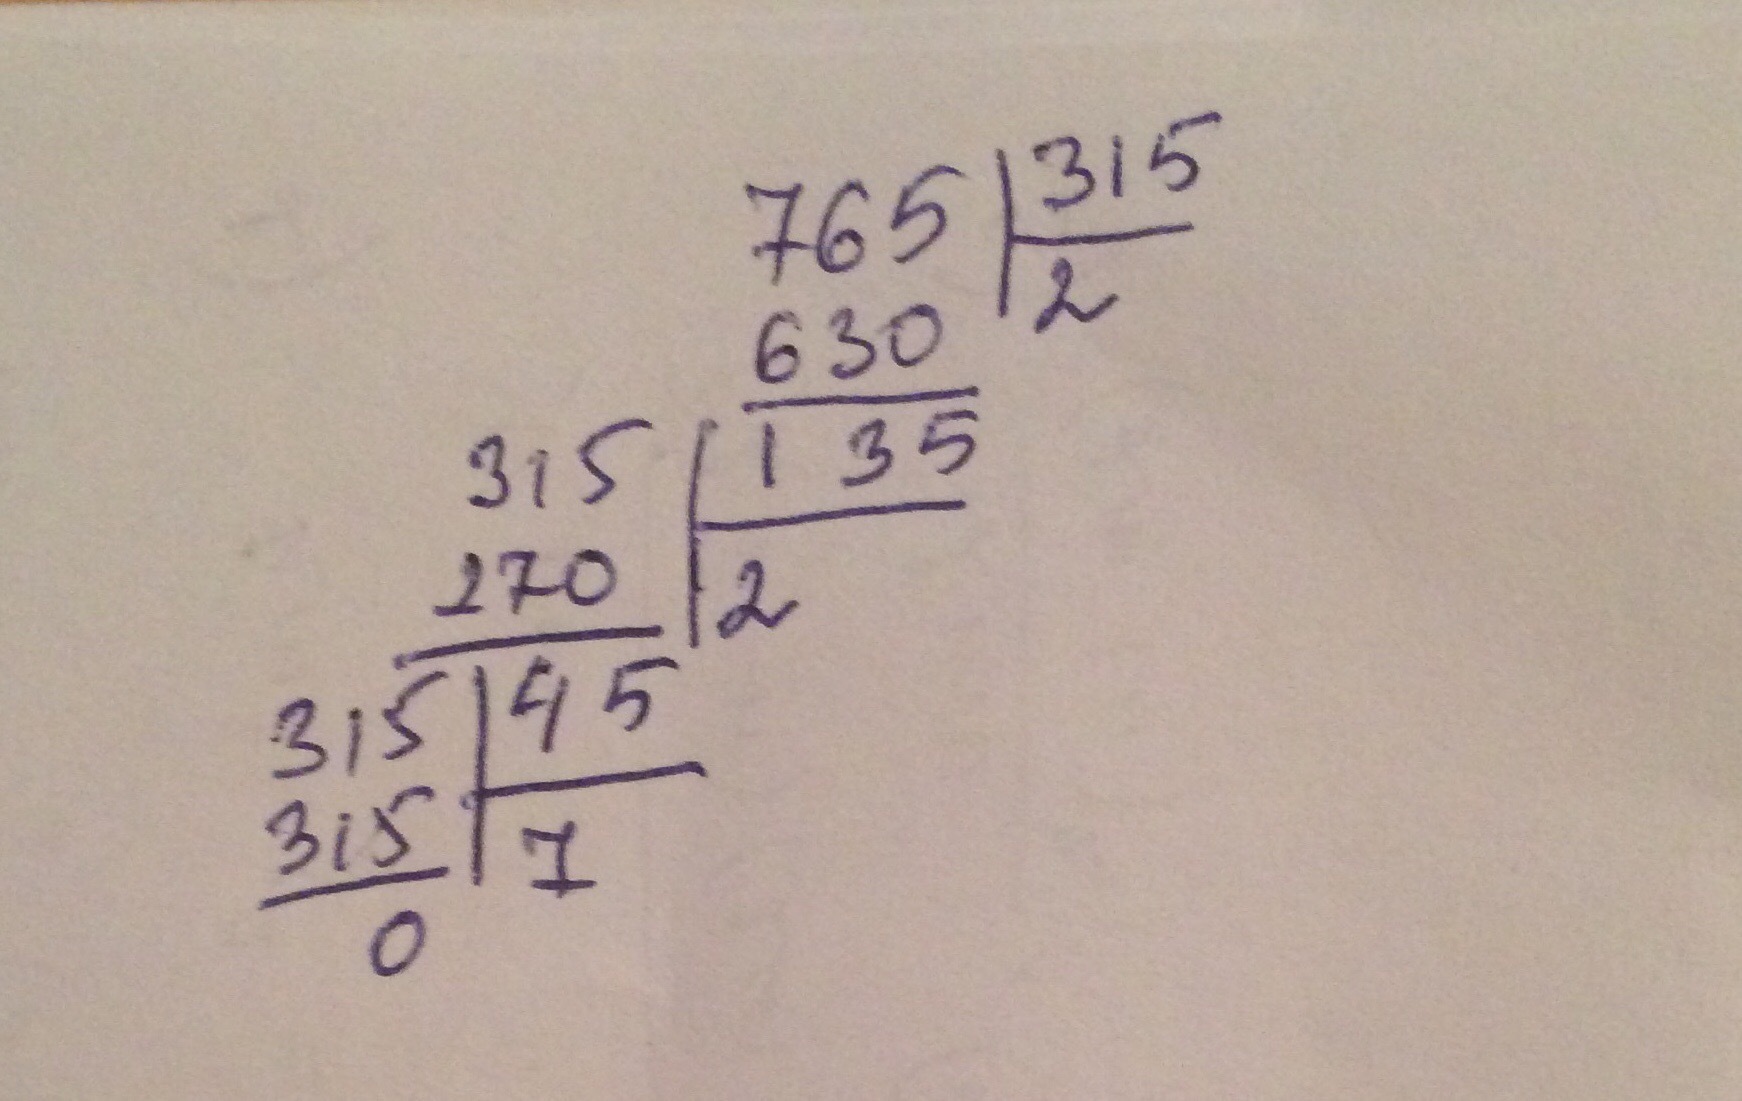 765 315
630 2
315 135
270 2
315 45
315 7
0